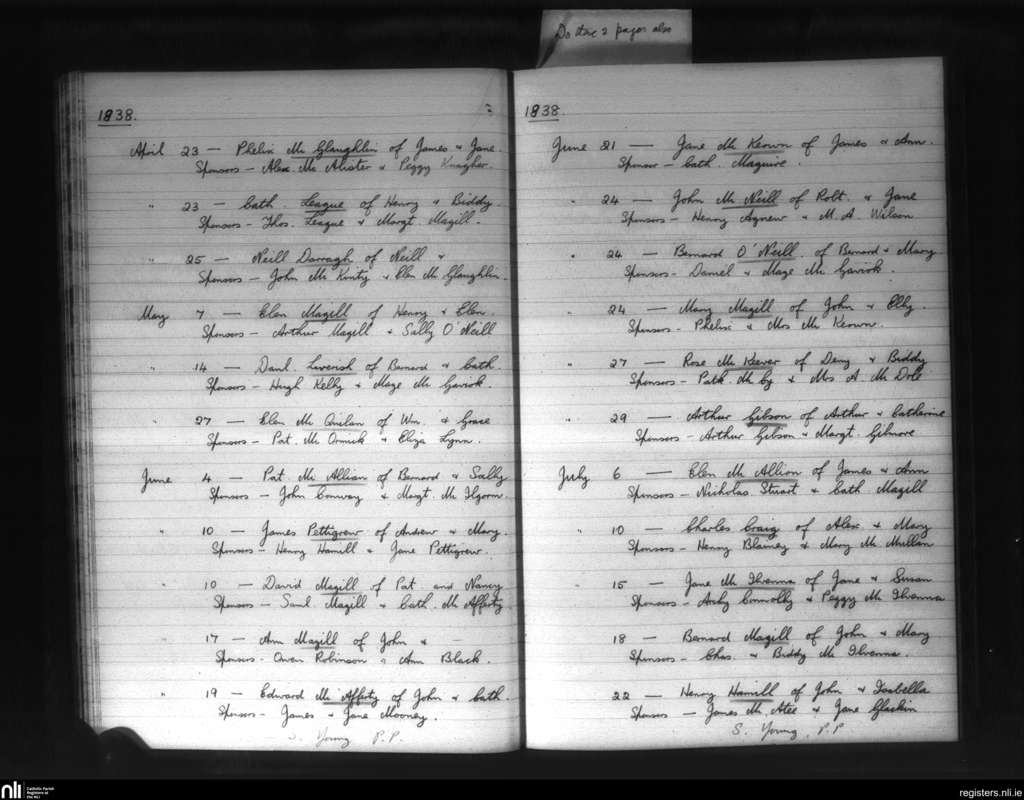 Do these 2 pages also
1838.
April 23 — Phelix Mc Glaughlin of James & Jane.
Sponsors - Alex. Mc Alister & Peggy Knagher.
" 23 — Cath. League of Henry & Biddy
Sponsors - Thos. League & Margt. Magill.
" 25 — Neill Darragh of Neill &
Sponsors - John Mc Kinty & Elen Mc Glaughlin.
May 7 — Elen Magill of Henry & Elen.
Sponsors - Arthur Magill & Sally O'Neill
" 14 — Danl. Liverish of Bernard & Cath.
Sponsors - Hugh Kelly & Mage Mc Gavick.
" 27 — Elen Mc Quilan of Wm. & Grace
Sponsors - Pat. Mc Ormick & Eliza Lynn.
June 4 — Pat Mc Allian of Bernard & Sally
Sponsors - John Conway & Margt Mc Ilgorm.
" 10 — James Pettigrew of Andrew & Mary.
Sponsors - Henry Hamill & Jane Pettigrew.
" 10 — David Magill of Pat. and Nancy
Sponsors - Saml. Magill & Cath. Mc Afferty
" 17 — Ann Magill of John & —
Sponsors - Owen Robinson " Ann Black.
" 19 — Edward Mc Afferty of John & Cath.
Sponsors - James & Jane Mooney.
S. Young P.P.
1838.
June 21 — Jane Mc Keown of James & Ann.
Sponsor - Cath. Maguire.
" 24 — John Mc Neill of Robt. & Jane
Sponsors - Henry Agnew & M. A. Wilson
" 24 — Bernard O'Neill of Bernard & Mary
Sponsors - Daniel & Mage Mc Gavick.
" 24 — Mary Magill of John & Elly.
Sponsors - Phelix & Mrs Mc Keown.
" 27 — Rose Mc Keever of Deny & Biddy
Sponsors - Patk Mc Cy & Mrs A. Mc Dole
" 29 — Arthur Gibson of Arthur & Catharine
Sponsors - Arthur Gibson & Margt. Gilmore
July 6 — Elen Mc Allion of James & Ann
Sponsors - Nicholas Stuart & Cath Magill
" 10 — Charles Craig of Alex. & Mary
Sponsors - Henry Blainey & Mary Mc Mullan
" 15 — Jane Mc Ilvenna of Jane & Susan
Sponsors - Arby Connolly & Peggy Mc Ilvenna
18 — Bernard Magill of John & Mary
Sponsors - Chas. & Biddy Mc Ilvenna.
22 — Henry Hamill of John & Isabella
Sponsors - James Mc Atee & Jane Glackin
S. Young, P.P
nli
Catholic Parish
Registers at
the NLI
registers.nli.ie